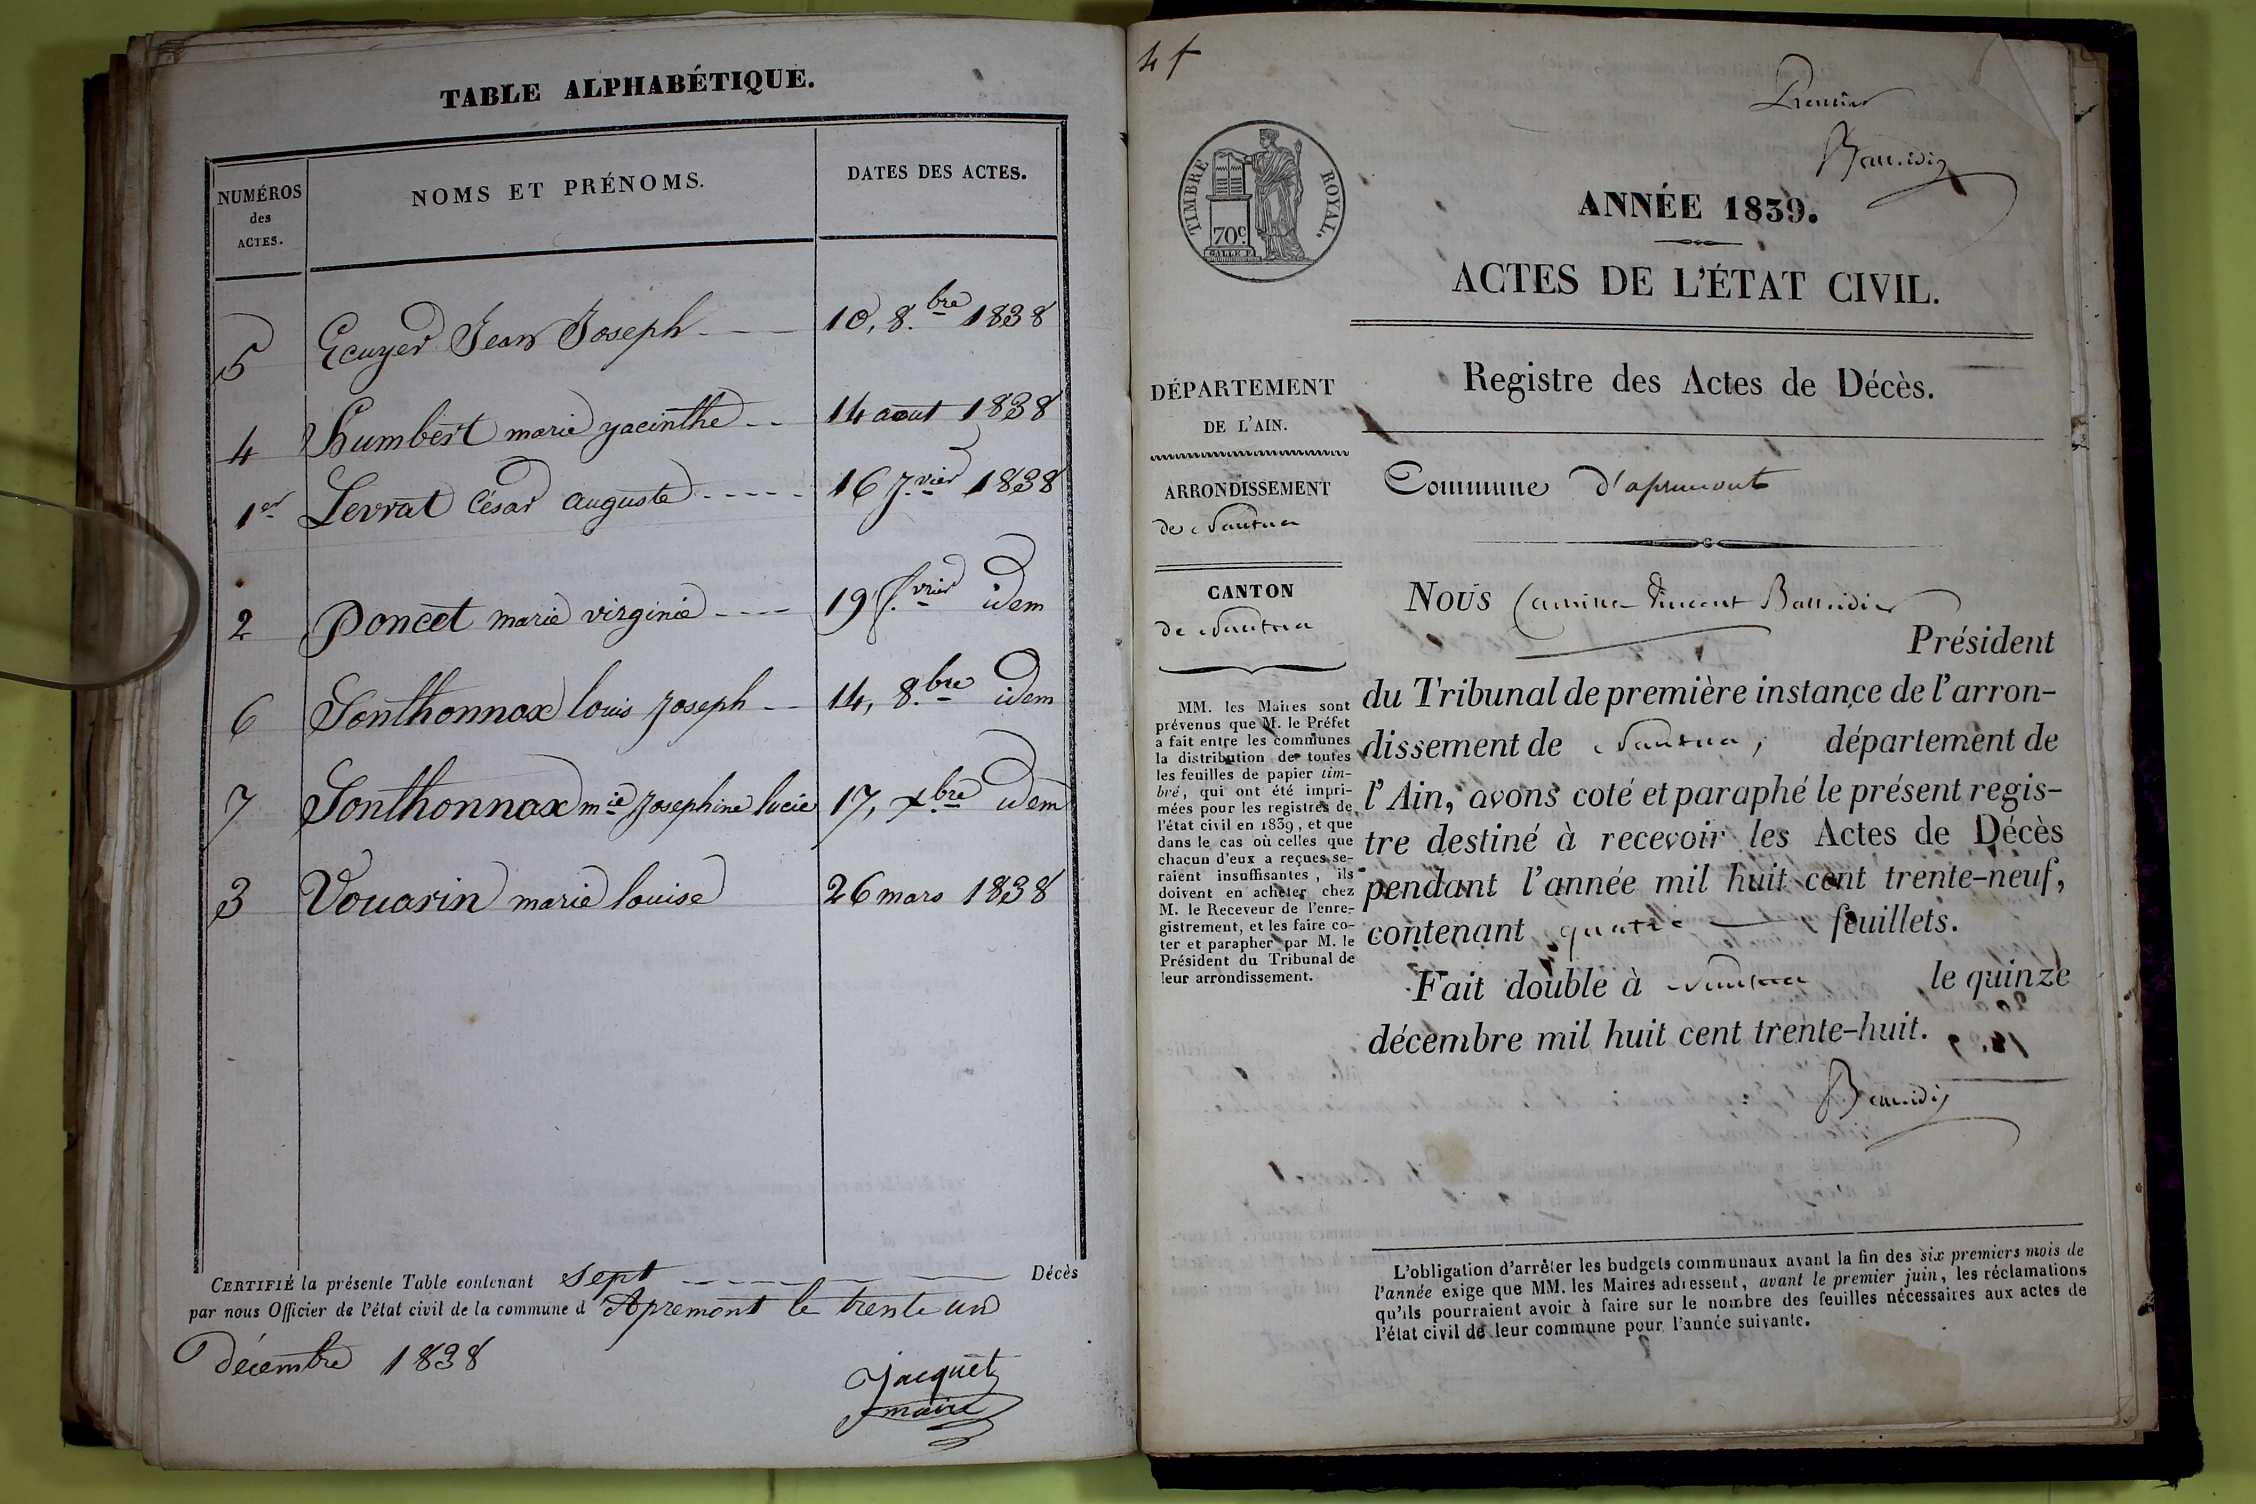 TABLE ALPHABÉTIQUE.
NUMÉROS
des
ACTES.
NOMS ET PRÉNOMS.
DATES DES ACTES.
5 Ecuyer Jean Joseph 10, 8.bre 1838
4 humbert marie yacinthe 14 aout 1838
1er Levrat César auguste 16 j.vier 1838
2 Poncet marie virginie 19 f.vrier idem
6 Sonthonnax louis joseph 14, 8.bre idem
7 Sonthonnax mie josephine lucie 17, xbre idem
3 Vouarin marie louise 26 mars 1838
CERTIFIÉ la présente Table contenant sept Décès
par nous Officier de l'état civil de la commune d'Apremont le trente un
décembre 1838
Jacquet
maire
4 f
Premier
TIMBRE ROYAL.
70c
ANNÉE 1839.
ACTES DE L'ÉTAT CIVIL.
Registre des Actes de Décès.
DÉPARTEMENT
DE L'AIN.
ARRONDISSEMENT
de Nantua
CANTON
de Nantua
MM. les Maires sont
prévenus que M. le Préfet
a fait entre les communes
la distribution de toutes
les feuilles de papier tim-
bré, qui ont été impri-
mées pour les registres de
l'état civil en 1839, et que
dans le cas où celles que
chacun d'eux a reçues se-
raient insuffisantes, ils
doivent en acheter chez
M. le Receveur de l'enre-
gistrement, et les faire co-
ter et parapher par M. le
Président du Tribunal de
leur arrondissement.
Commune d'apremont
Nous Camille Vincent
Président
du Tribunal de première instance de l'arron-
dissement de Nantua, département de
l'Ain, avons coté et paraphé le présent regis-
tre destiné à recevoir les Actes de Décès
pendant l'année mil huit cent trente-neuf,
contenant quatre feuillets.
Fait double à Nantua le quinze
décembre mil huit cent trente-huit.
L'obligation d'arrêter les budgets communaux avant la fin des six premiers mois de
l'année exige que MM. les Maires adressent, avant le premier juin, les réclamations
qu'ils pourraient avoir à faire sur le nombre des feuilles nécessaires aux actes de
l'état civil de leur commune pour l'année suivante.